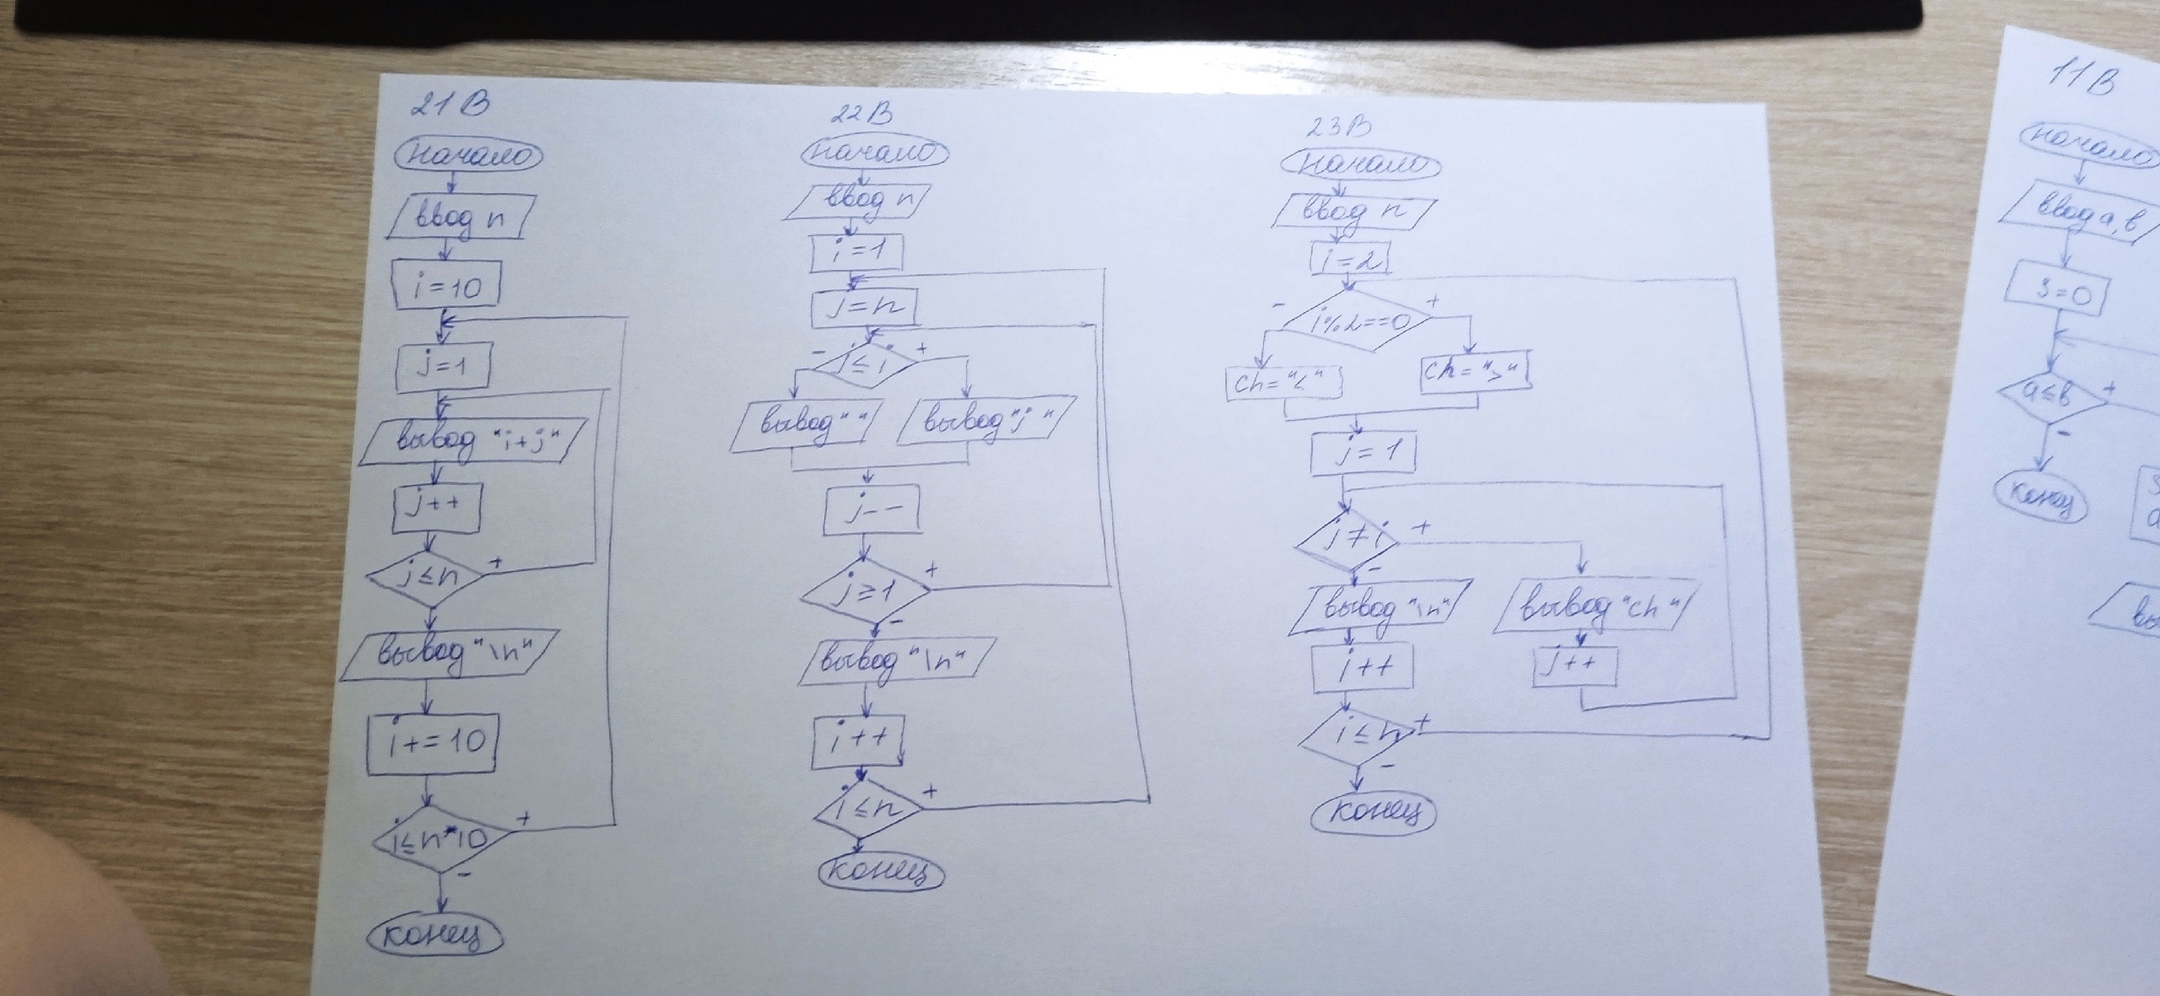 21В
начало
ввод n
i=10
j=1
вывод "i+j"
j++
j≤n
+
вывод "\n"
i+=10
i≤n*10
+
-
конец
22В
начало
ввод n
i=1
j=n
- j≤i +
вывод" " вывод"j "
j--
j≥1
+
-
вывод "\n"
i++
i≤n
+
конец
23В
начало
ввод n
i=2
- i%2==0 +
ch="<" ch=">"
j=1
j≠i +
-
вывод "\n" вывод "ch "
i++ j++
i≤n +
-
конец
11В
начало
ввод a,b
S=0
a≤b +
-
конец